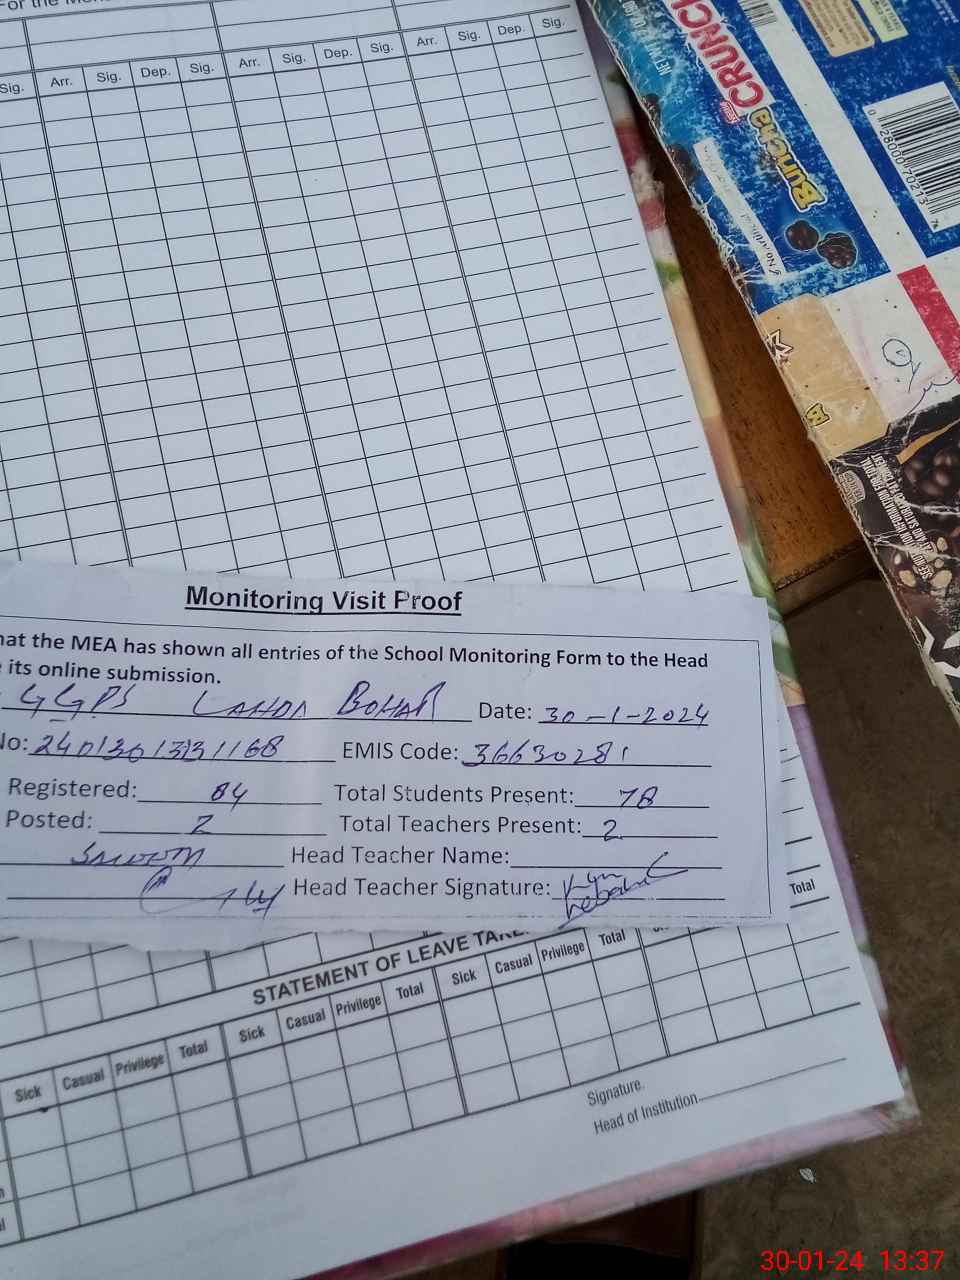 For the
Sig. Arr. Sig. Dep. Sig. Arr. Sig. Dep. Sig. Arr. Sig. Dep. Sig.
CRUNCH
Nestlé
Buncha
No artificial
0 28000 70213
SEE NUTRITION INFORMATION FOR TOTAL
FAT AND SATURATED FAT CONTENT
Monitoring Visit Proof
hat the MEA has shown all entries of the School Monitoring Form to the Head
its online submission.
GGPS LAHDA BOHAR Date: 30-1-2024
No: EMIS Code: 36630281
Registered: 84 Total Students Present: 78
Posted: 2 Total Teachers Present: 2
Head Teacher Name:
Head Teacher Signature:
Total
STATEMENT OF LEAVE TAKE
Sick Casual Privilege Total Sick Casual Privilege Total Sick Casual Privilege Total
Signature.
Head of Institution
30-01-24 13:37